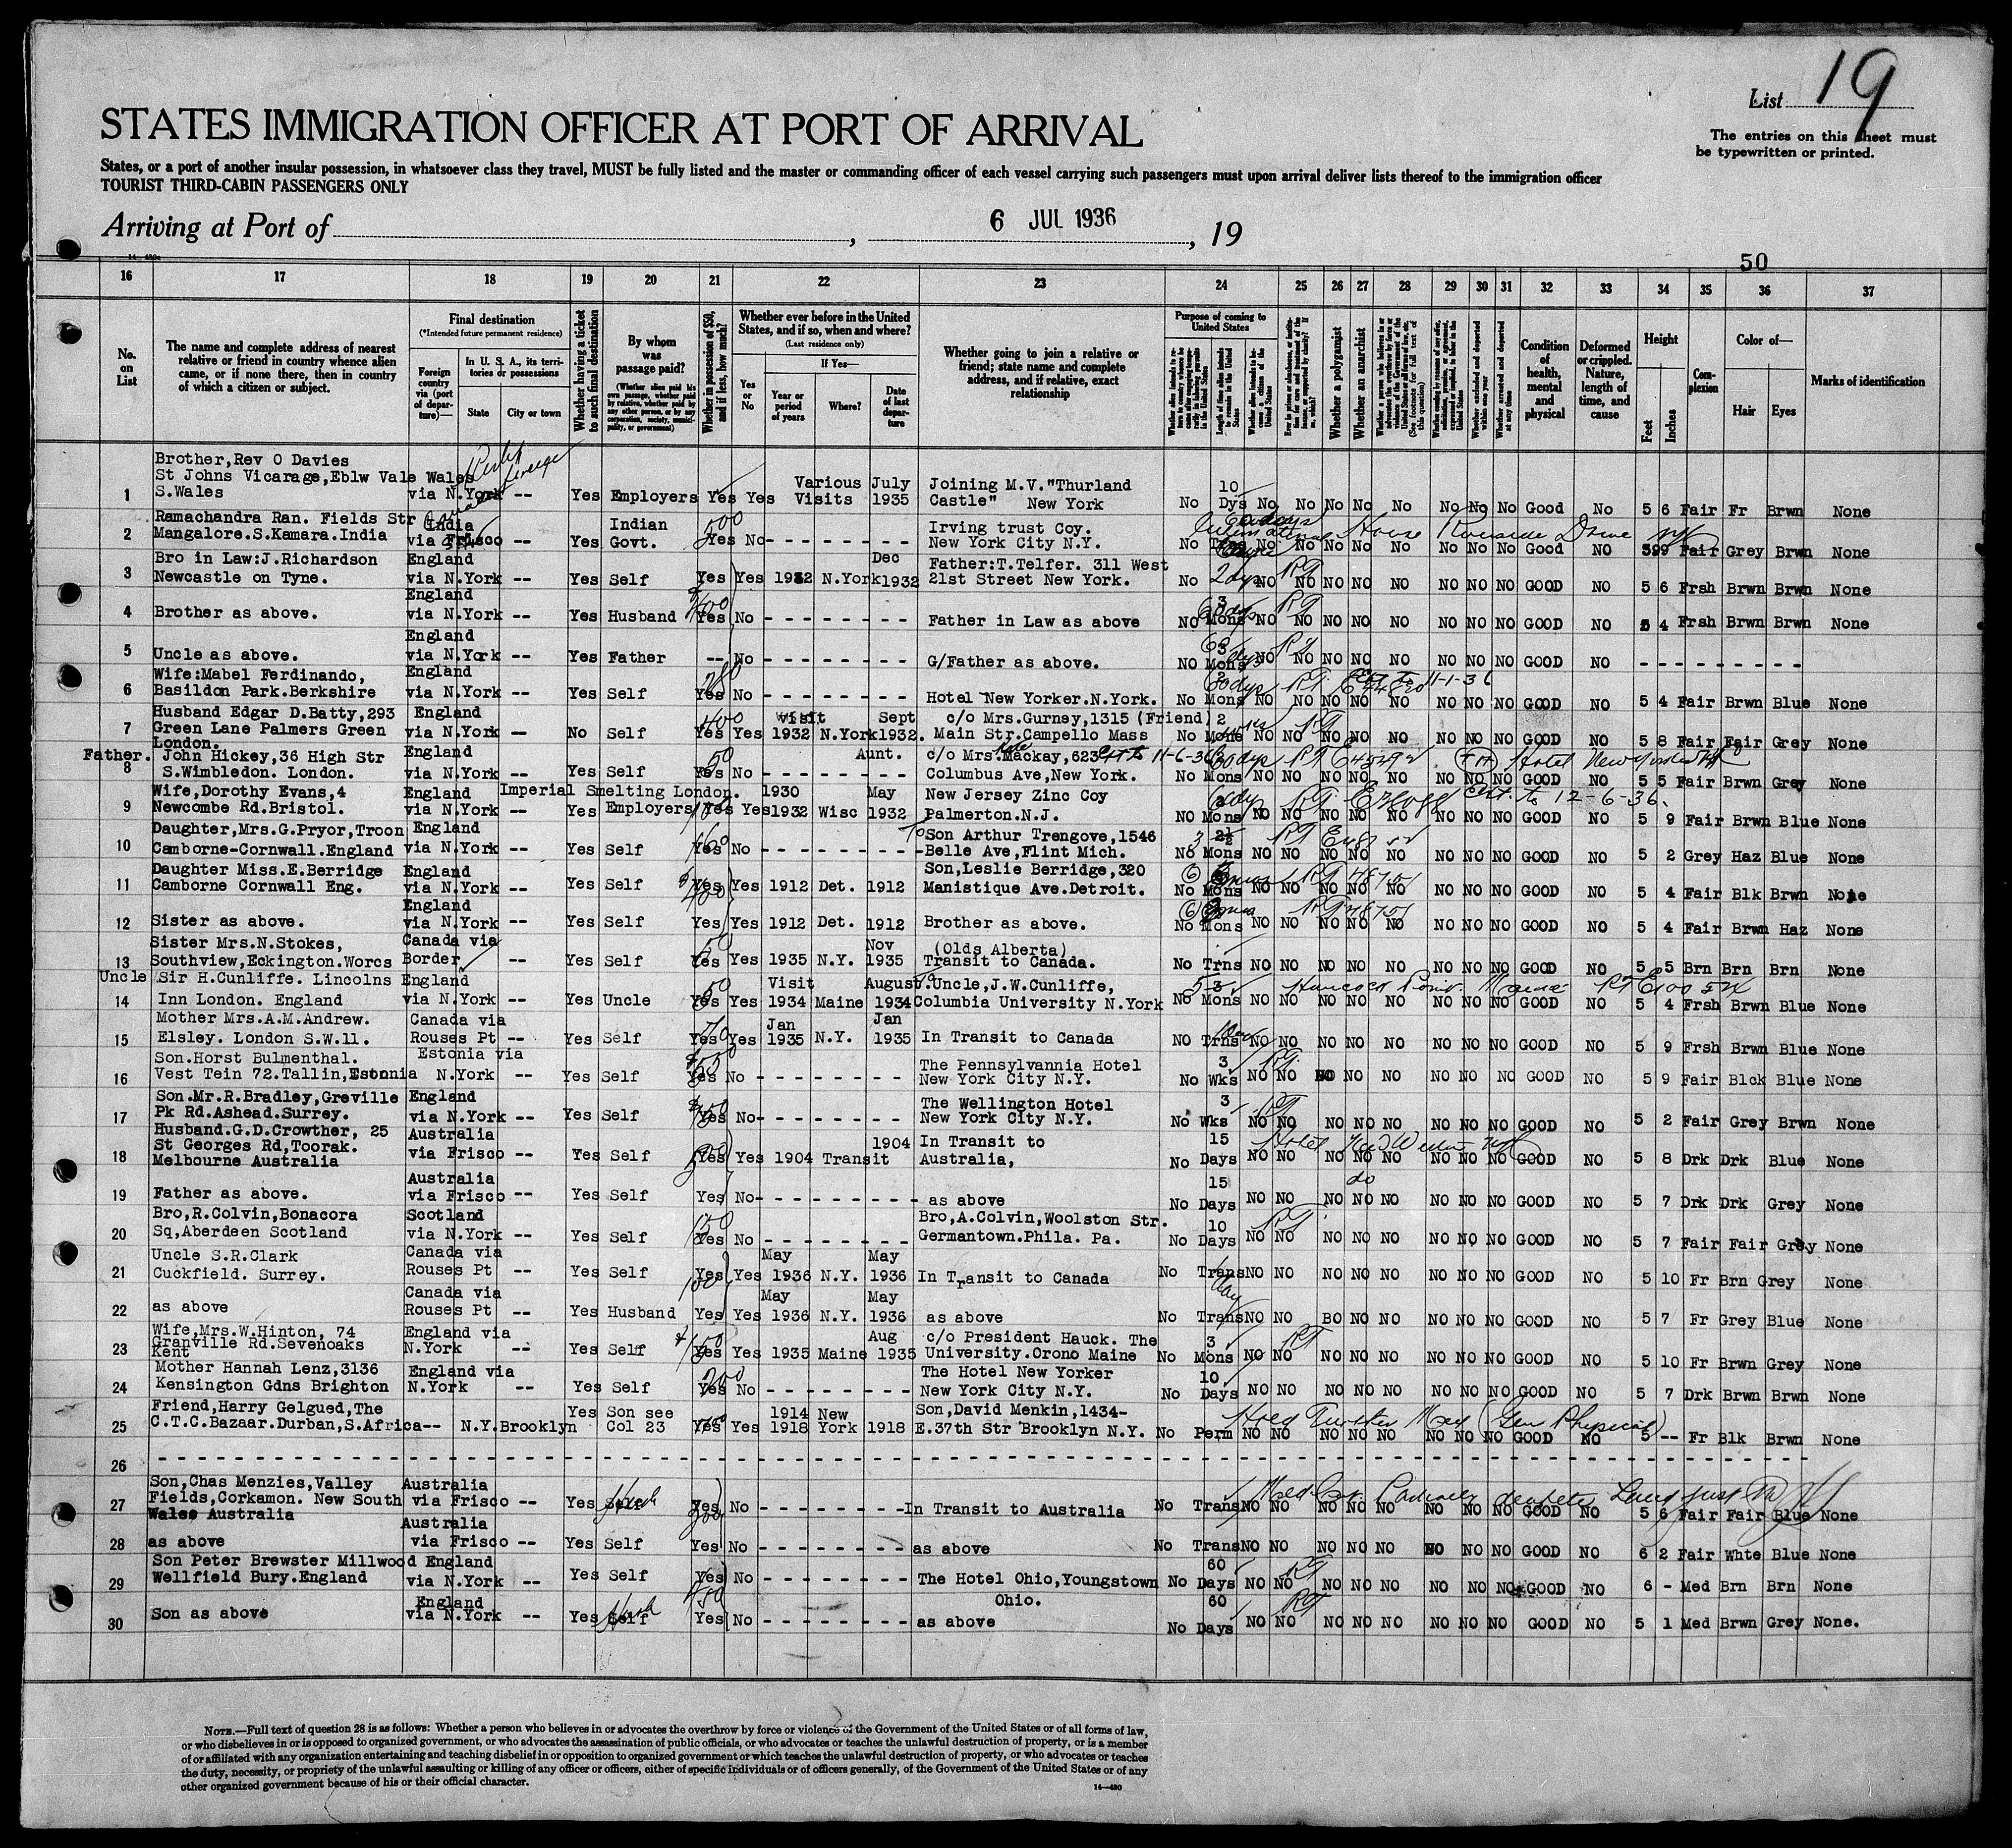 List 19
STATES IMMIGRATION OFFICER AT PORT OF ARRIVAL
The entries on this sheet must
be typewritten or printed.
States, or a port of another insular possession, in whatsoever class they travel, MUST be fully listed and the master or commanding officer of each vessel carrying such passengers must upon arrival deliver lists thereof to the immigration officer
TOURIST THIRD-CABIN PASSENGERS ONLY
Arriving at Port of , 6 JUL 1936 , 19
50
16 17 18 19 20 21 22 23 24 25 26 27 28 29 30 31 32 33 34 35 36 37
No. on List
The name and complete address of nearest relative or friend in country whence alien came, or if none there, then in country of which a citizen or subject.
Final destination
(*Intended future permanent residence)
Foreign country via (port of departure)—
In U. S. A., its territories or possessions
State City or town
Whether having a ticket to such final destination
By whom was passage paid?
(Whether alien paid his own passage, whether paid by relative, whether paid by any other person, or by any corporation, society, municipality, or government)
Whether in possession of $50, and if less, how much?
Whether ever before in the United States, and if so, when and where?
(Last residence only)
Yes or No
If Yes—
Year or period of years Where? Date of last departure
Whether going to join a relative or friend; state name and complete address, and if relative, exact relationship
Purpose of coming to United States
Whether a polygamist
Whether an anarchist
Condition of health, mental and physical
Deformed or crippled. Nature, length of time, and cause
Height
Feet Inches
Complexion
Color of—
Hair Eyes
Marks of identification
Brother,Rev O Davies
St Johns Vicarage,Eblw Vale Wales
1 S.Wales via N.York -- Yes Employers Yes Yes Various Visits July 1935 Joining M.V."Thurland Castle" New York No 10 Dys No No No No No No No No Good No 5 6 Fair Fr Brwn None
Ramachandra Ran. Fields Str India
2 Mangalore.S.Kamara.India via Frisco -- Yes Indian Govt. 500 Yes No - - - - - - - Irving trust Coy. New York City N.Y. No International House Riverside Drive No No No No No No No No Good NO Fair Grey Brwn None
Bro in Law:J.Richardson England
3 Newcastle on Tyne. via N.York -- Yes Self Yes Yes 1932 N.York Dec 1932 Father:T.Telfer. 311 West 21st Street New York. No NO NO NO NO NO NO NO NO GOOD NO 5 6 Frsh Brwn Brwn None
England
4 Brother as above. via N.York -- Yes Husband Yes No - - - - - - - - Father in Law as above NO 3 Mons NO NO NO NO NO NO NO NO GOOD NO 5 4 Frsh Brwn Brwn None
England
5 Uncle as above. via N.York -- Yes Father -- No - - - - - - - - G/Father as above. NO Mons NO NO NO NO NO NO NO NO GOOD NO - - - - - - - - -
Wife:Mabel Ferdinando, England
6 Basildon Park.Berkshire via N.York -- Yes Self 280 Yes No - - - - - - - Hotel New Yorker.N.York. No Mons NO NO NO NO NO NO NO NO GOOD NO 5 4 Fair Brwn Blue None
11-1-36
Husband Edgar D.Batty,293 England
7 Green Lane Palmers Green via N.York -- No Self 400 Yes Yes visit 1932 N.York Sept 1932. c/o Mrs.Gurney,1315 (Friend) Main Str.Campello Mass No 2 Mons NO NO NO NO NO NO NO NO GOOD NO 5 8 Fair Fair Grey None
London.
Father. John Hickey,36 High Str England
8 S.Wimbledon. London. via N.York -- Yes Self 50 Yes No - - - - - - - Aunt. c/o Mrs.Kate Mackay,623 Columbus Ave,New York. No Mons NO NO NO NO NO NO NO NO GOOD NO 5 5 Fair Brwn Grey None
11-6-36
Wife,Dorothy Evans,4 England Imperial Smelting London.
9 Newcombe Rd.Bristol. via N.York -- Yes Employers Yes Yes 1930 1932 Wisc May 1932 New Jersey Zinc Coy Palmerton.N.J. NO Mons NO NO NO NO NO NO NO NO GOOD NO 5 9 Fair Brwn Blue None
cert. to 12-6-36.
Daughter,Mrs.G.Pryor,Troon England
10 Camborne-Cornwall.England via N.York -- Yes Self 160 Yes No - - - - - - - - To Son Arthur Trengove,1546 Belle Ave,Flint Mich. 3 No Mons NO NO NO NO NO NO NO NO GOOD NO 5 2 Grey Haz Blue None
Daughter Miss.E.Berridge England
11 Camborne Cornwall Eng. via N.York -- Yes Self 400 Yes Yes 1912 Det. 1912 Son,Leslie Berridge,320 Manistique Ave.Detroit. No Mons NO NO NO NO NO NO NO NO GOOD NO 5 4 Fair Blk Brwn None
England
12 Sister as above. via N.York -- Yes Self Yes Yes 1912 Det. 1912 Brother as above. No Mons NO NO NO NO NO NO NO NO GOOD NO 5 4 Fair Brwn Haz None
Sister Mrs.N.Stokes, Canada via
13 Southview,Eckington.Worcs Border -- Yes Self 50 Yes Yes 1935 N.Y. Nov 1935 (Olds Alberta) Transit to Canada. No Trns NO NO NO NO NO NO NO NO GOOD NO 5 5 Brn Brn Brn None
Uncle Sir H.Cunliffe. Lincolns England
14 Inn London. England via N.York -- Yes Uncle 50 Yes Yes Visit 1934 Maine August. 1934 To Uncle,J.W.Cunliffe, Columbia University N.York No Mons NO NO NO NO NO NO NO NO GOOD NO 5 4 Frsh Brwn Blue None
Mother Mrs.A.M.Andrew. Canada via
15 Elsley. London S.W.11. Rouses Pt -- Yes Self 70 Yes Yes Jan 1935 N.Y. Jan 1935 In Transit to Canada NO Trns NO NO NO NO NO NO NO NO GOOD NO 5 9 Frsh Brwn Blue None
Son.Horst Bulmenthal. Estonia via
16 Vest Tein 72.Tallin,Estonia N.York -- Yes Self Yes No - - - - - - - - The Pennsylvannia Hotel New York City N.Y. No 3 Wks NO NO NO NO NO NO NO NO GOOD NO 5 9 Fair Blck Blue None
Son.Mr.R.Bradley,Greville England
17 Pk Rd.Ashead.Surrey. via N.York -- Yes Self Yes No - - - - - - - - The Wellington Hotel New York City N.Y. No 3 Wks NO NO NO NO NO NO NO NO GOOD NO 5 2 Fair Grey Brwn None
Husband.G.D.Crowther, 25 Australia
18 St Georges Rd,Toorak. Melbourne Australia via Frisco -- Yes Self Yes Yes 1904 Transit 1904 In Transit to Australia, No 15 Days NO NO NO NO NO NO NO NO GOOD NO 5 8 Drk Drk Blue None
Australia
19 Father as above. via Frisco -- Yes Self Yes No - - - - - - - - as above No 15 Days NO NO do NO NO NO NO NO NO GOOD NO 5 7 Drk Drk Grey None
Bro,R.Colvin,Bonacora Scotland
20 Sq,Aberdeen Scotland via N.York -- Yes Self 150 Yes No - - - - - - - - Bro,A.Colvin,Woolston Str. Germantown.Phila. Pa. No 10 Days NO NO NO NO NO NO NO NO GOOD NO 5 7 Fair Fair Grey None
Uncle S.R.Clark Canada via
21 Cuckfield. Surrey. Rouses Pt -- Yes Self 100 Yes Yes May 1936 N.Y. May 1936 In Transit to Canada No Trans NO NO NO NO NO NO NO NO GOOD NO 5 10 Fr Brn Grey None
Canada via
22 as above Rouses Pt -- Yes Husband Yes Yes May 1936 N.Y. May 1936 as above No Trans NO NO BO NO NO NO NO NO GOOD NO 5 7 Fr Grey Blue None
Wife,Mrs.W.Hinton, 74 England via
23 Granville Rd.Sevenoaks Kent N.York -- Yes Self 150 Yes Yes 1935 Maine Aug 1935 c/o President Hauck. The University.Orono Maine No 3 Mons NO NO NO NO NO NO NO NO GOOD NO 5 10 Fr Brwn Grey None
Mother Hannah Lenz,3136 England via
24 Kensington Gdns Brighton N.York -- Yes Self 200 Yes No - - - - - - - - The Hotel New Yorker New York City N.Y. No 10 Days NO NO NO NO NO NO NO NO GOOD NO 5 7 Drk Brwn Brwn None
Friend,Harry Gelgued,The
25 C.T.C.Bazaar.Durban,S.Africa-- N.Y.Brooklyn Yes Son see Col 23 Yes Yes 1914 1918 New York 1918 Son,David Menkin,1434- E.37th Str Brooklyn N.Y. No Perm NO NO NO NO NO NO NO NO GOOD NO 5 -- Fr Blk Brwn None
26 - - - - - - - - - - - - - - - - - - - -
Son,Chas Menzies,Valley Australia
27 Fields,Corkamon. New South Wales Australia via Frisco -- Yes Self Yes No - - - - - - - - In Transit to Australia No Trans NO NO NO NO NO NO NO NO GOOD NO 5 6 Fair Fair Blue None
Australia
28 as above via Frisco -- Yes Self Yes No - - - - - - - - as above No Trans NO NO NO NO NO NO NO NO GOOD NO 6 2 Fair Whte Blue None
Son Peter Brewster Millwood England
29 Wellfield Bury.England via N.York -- Yes Self Yes No - - - - - - - - The Hotel Ohio,Youngstown Ohio. No 60 Days NO NO NO NO NO NO NO NO GOOD NO 6 - Med Brn Brn None
England
30 Son as above via N.York -- Yes Self Yes No - - - - - - - - as above No 60 Days NO NO NO NO NO NO NO NO GOOD NO 5 1 Med Brwn Grey None.
NOTE.—Full text of question 28 is as follows: Whether a person who believes in or advocates the overthrow by force or violence of the Government of the United States or of all forms of law,
or who disbelieves in or is opposed to organized government, or who advocates the assassination of public officials, or who advocates or teaches the unlawful destruction of property, or is a member
of or affiliated with any organization entertaining and teaching disbelief in or opposition to organized government or which teaches the unlawful destruction of property, or who advocates or teaches
the duty, necessity, or propriety of the unlawful assaulting or killing of any officer or officers, either of specific individuals or of officers generally, of the Government of the United States or of any
other organized government because of his or their official character.
14—480